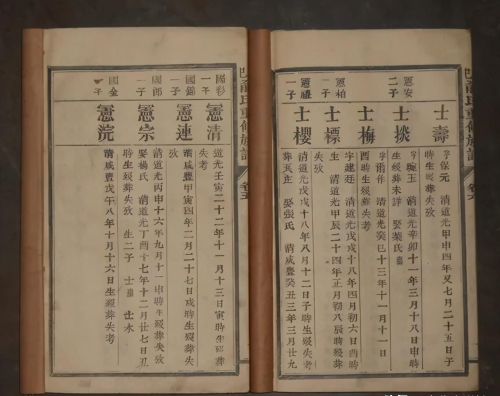 氏重修族譜 卷六
士壽
字保元 清道光甲申四年又七月二十五日子
時生歿葬失攷
憲安
二子
士掞
字琬玉 清道光辛卯十一年三月十八日申時
生歿葬未詳 娶葉氏
士梅
字爾作 清道光癸巳十三年十一月十一日
酉時生歿葬失考
憲柏
一子
士標
字建廷 清道光戊戌十八年四月初六日酉時
生 清道光甲辰二十四年正月初八辰時歿葬
失攷
憲
一子
士櫻
清道光戊戌十八年八月十二日子時生歿
葬天正 娶張氏 清咸豐癸丑三年三月廿九
國彩
一子
憲清
道光壬寅二十二年十一月十三日寅時生歿葬
失考
國錫
一子
憲連
清咸豐甲寅四年二月二十七日戌時生歿葬失
攷
國郎
一子
憲宗
清道光丙申十六年九月十一申時生歿葬失攷
娶楊氏 清道光丁酉十七年十二月廿七日丑
時生歿葬失考 生二子 士 士永
國金
一子
憲浣
清咸豐戊午八年十月十六日生歿葬失考